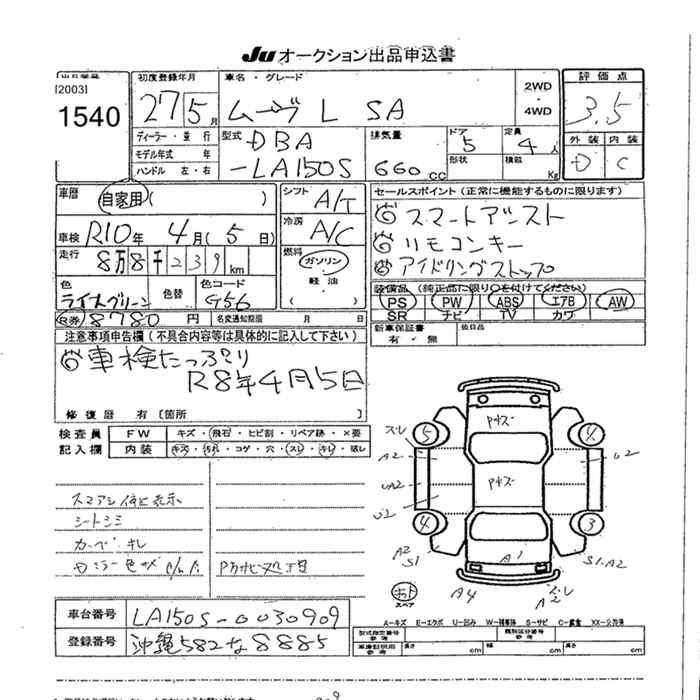 Ju オークション出品申込書
出品番号 初度登録年月 車名・グレード 評価点
[2003]
1540 27 5月 ムーヴ L SA 2WD・4WD 3.5
ディーラー・並行 型式 DBA 排気量 ドア 5 定員 4人 外装 内装
モデル年式 年
ハンドル 左・右 -LA150S 660cc 形状 積載 Kg D C
車歴 自家用( ) シフト A/T セールスポイント (正常に機能するものに限ります)
スマートアシスト
車検 R10年 4月(5日) 冷房 A/C リモコンキー
走行 8万8千239km 燃料 ガソリン・軽油・( ) アイドリングストップ
色 ライトグリーン 色替 色コード G56 装備品 (純正品に限り○を付けてください)
PS PW ABS エアB AW
SR ナビ TV カワ
R券 8780円 名変通知期限 月 日 新車保証書 有・無 後日品
注意事項申告欄 (不具合内容等は具体的に記入して下さい)
車検たっぷり
R8年4月5日
修復歴 有 [箇所 ]
検査員 FW キズ・飛石・ヒビ割・リペア跡・×要
記入欄 内装 キズ・汚れ・コゲ・穴・スレ・キレ・
Pキズ
スレ 5 4
A2 U2
Pキズ
スマアシ 表示 UA2
シートシミ U2
カーペ キレ 4 3
A2 S1 A1 S1.A2
A4 スレ A2
スペア
車台番号 LA150S-0030909 A-キズ E-エクボ U-凹み W-補修跡 S-サビ C-腐食 XX-交換済
登録番号 沖縄582な8885 型式指定番号 参考 類別区分番号 参考
車庫証明用 参考 長さ cm 幅 cm 高さ cm